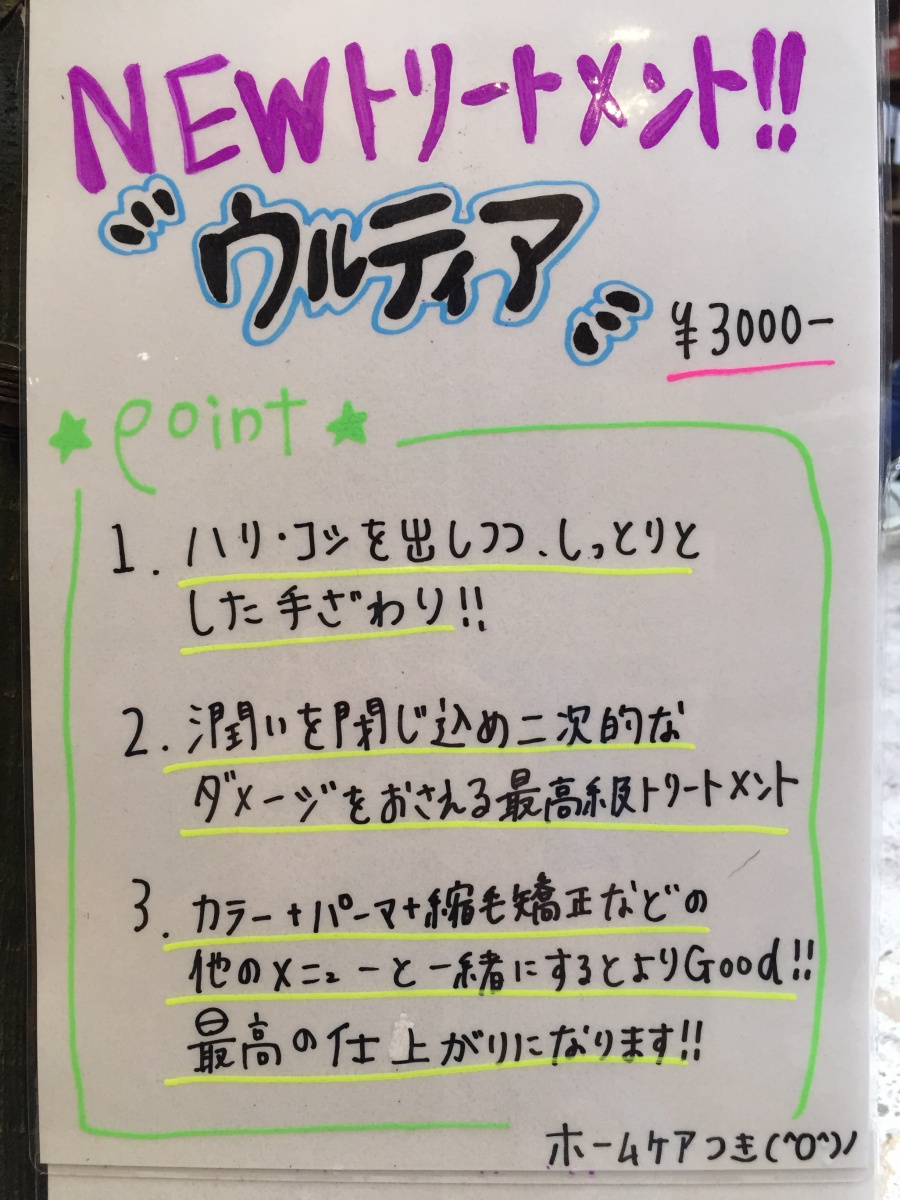 NEWトリートメント!!
ウルティア
¥3000-
★ point ★
1. ハリ・コシを出しつつ、しっとりと
した手ざわり!!
2. 潤いを閉じ込め二次的な
ダメージをおさえる最高級トリートメント
3. カラー+パーマ+縮毛矯正などの
他のメニューと一緒にするとよりGood!!
最高の仕上がりになります!!
ホームケアつき(^O^)ノ